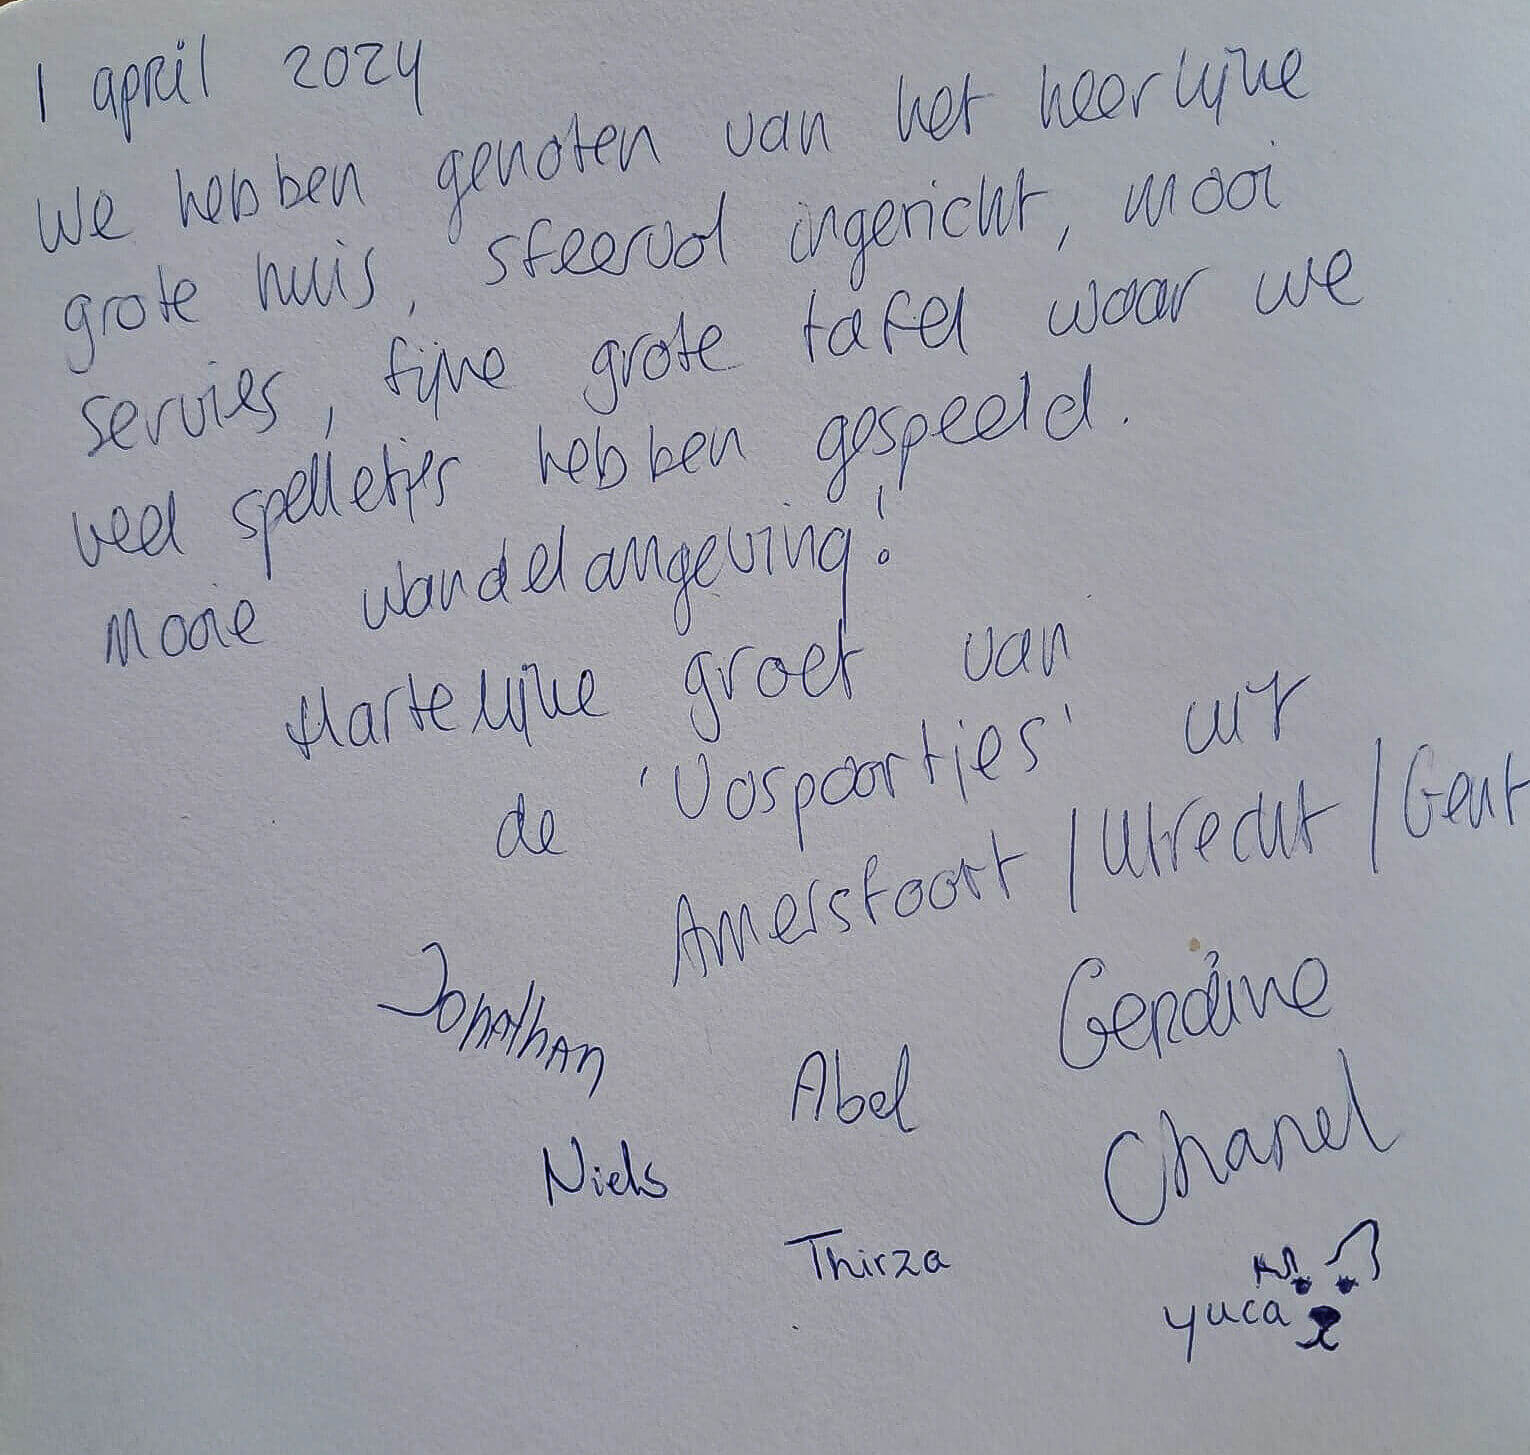 1 april 2024
We hebben genoten van het heerlijke
grote huis, sfeervol ingericht, mooi
servies, fijne grote tafel waar we
veel spelletjes hebben gespeeld.
Mooie wandelomgeving!
Hartelijke groet van
de 'Vospoortjes' uit
Amersfoort / Utrecht / Gent
Jonathan
Abel
Gerdine
Niels
Chanel
Thirza
yuca